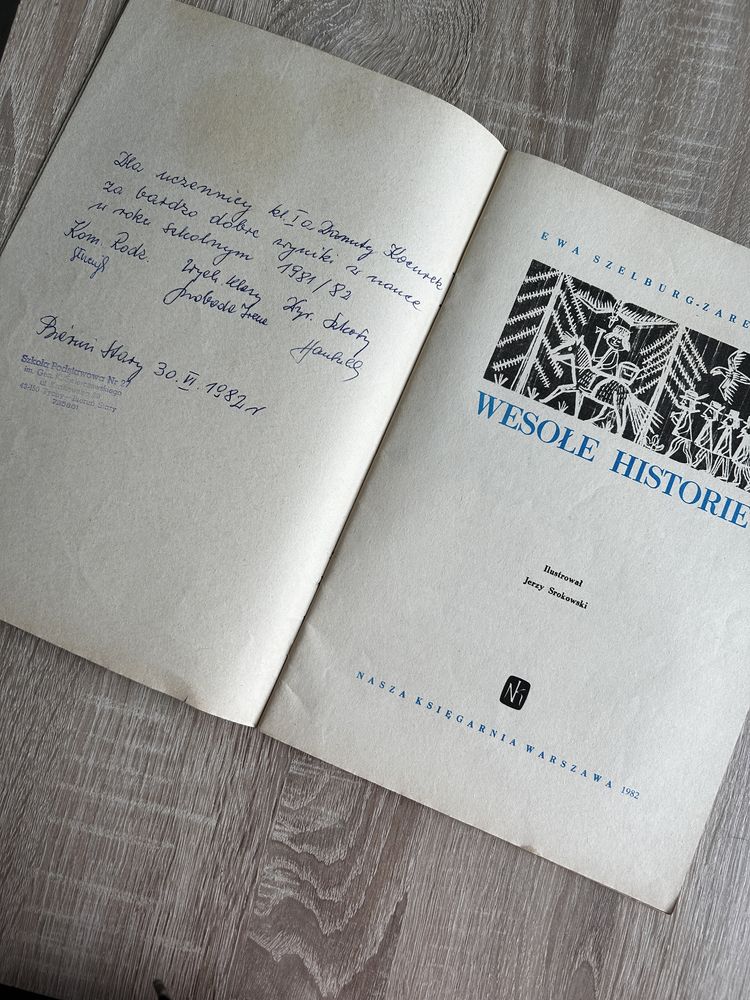 Dla uczennicy kl. Ia Danuty Kocurek
za bardzo dobre wyniki w nauce
w roku szkolnym 1981/82
Kom. Rodz. Wych. klasy Dyr. Szkoły
Swoboda Irena
Bieruń Stary 30.VI.1982 r
Szkoła Podstawowa Nr 27
im. Gen.
43-150 Tychy - Bieruń Stary
EWA SZELBURG-ZARE
WESOŁE HISTORIE
Ilustrował
Jerzy Srokowski
NASZA KSIĘGARNIA WARSZAWA 1982